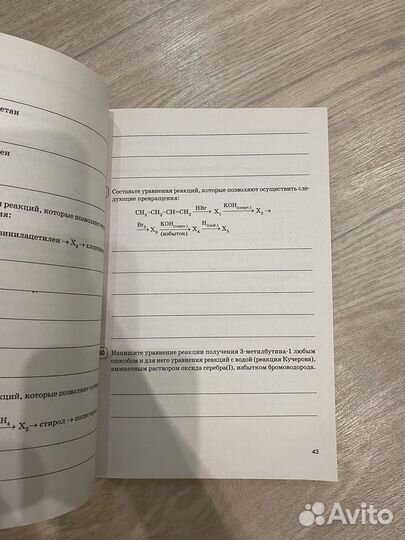 етан
ен
реакций, которые позволяют
винилацетилен → X₃ → хлоропрен
кций, которые позволяют
H₄ → X₂ → стирол → полистирол
Составьте уравнения реакций, которые позволяют осуществить сле-
дующие превращения:
CH₃–CH₂–CH=CH₂ —HBr→ X₁ —KOH(спирт.)→ X₂ →
—Br₂→ X₃ —KOH(спирт.) (избыток)→ X₄ —H₂(изб.)→ X₅
Напишите уравнение реакции получения 3-метилбутина-1 любым
способом и для него уравнения реакций с водой (реакция Кучерова),
аммиачным раствором оксида серебра(I), избытком бромоводорода.
43
Avito